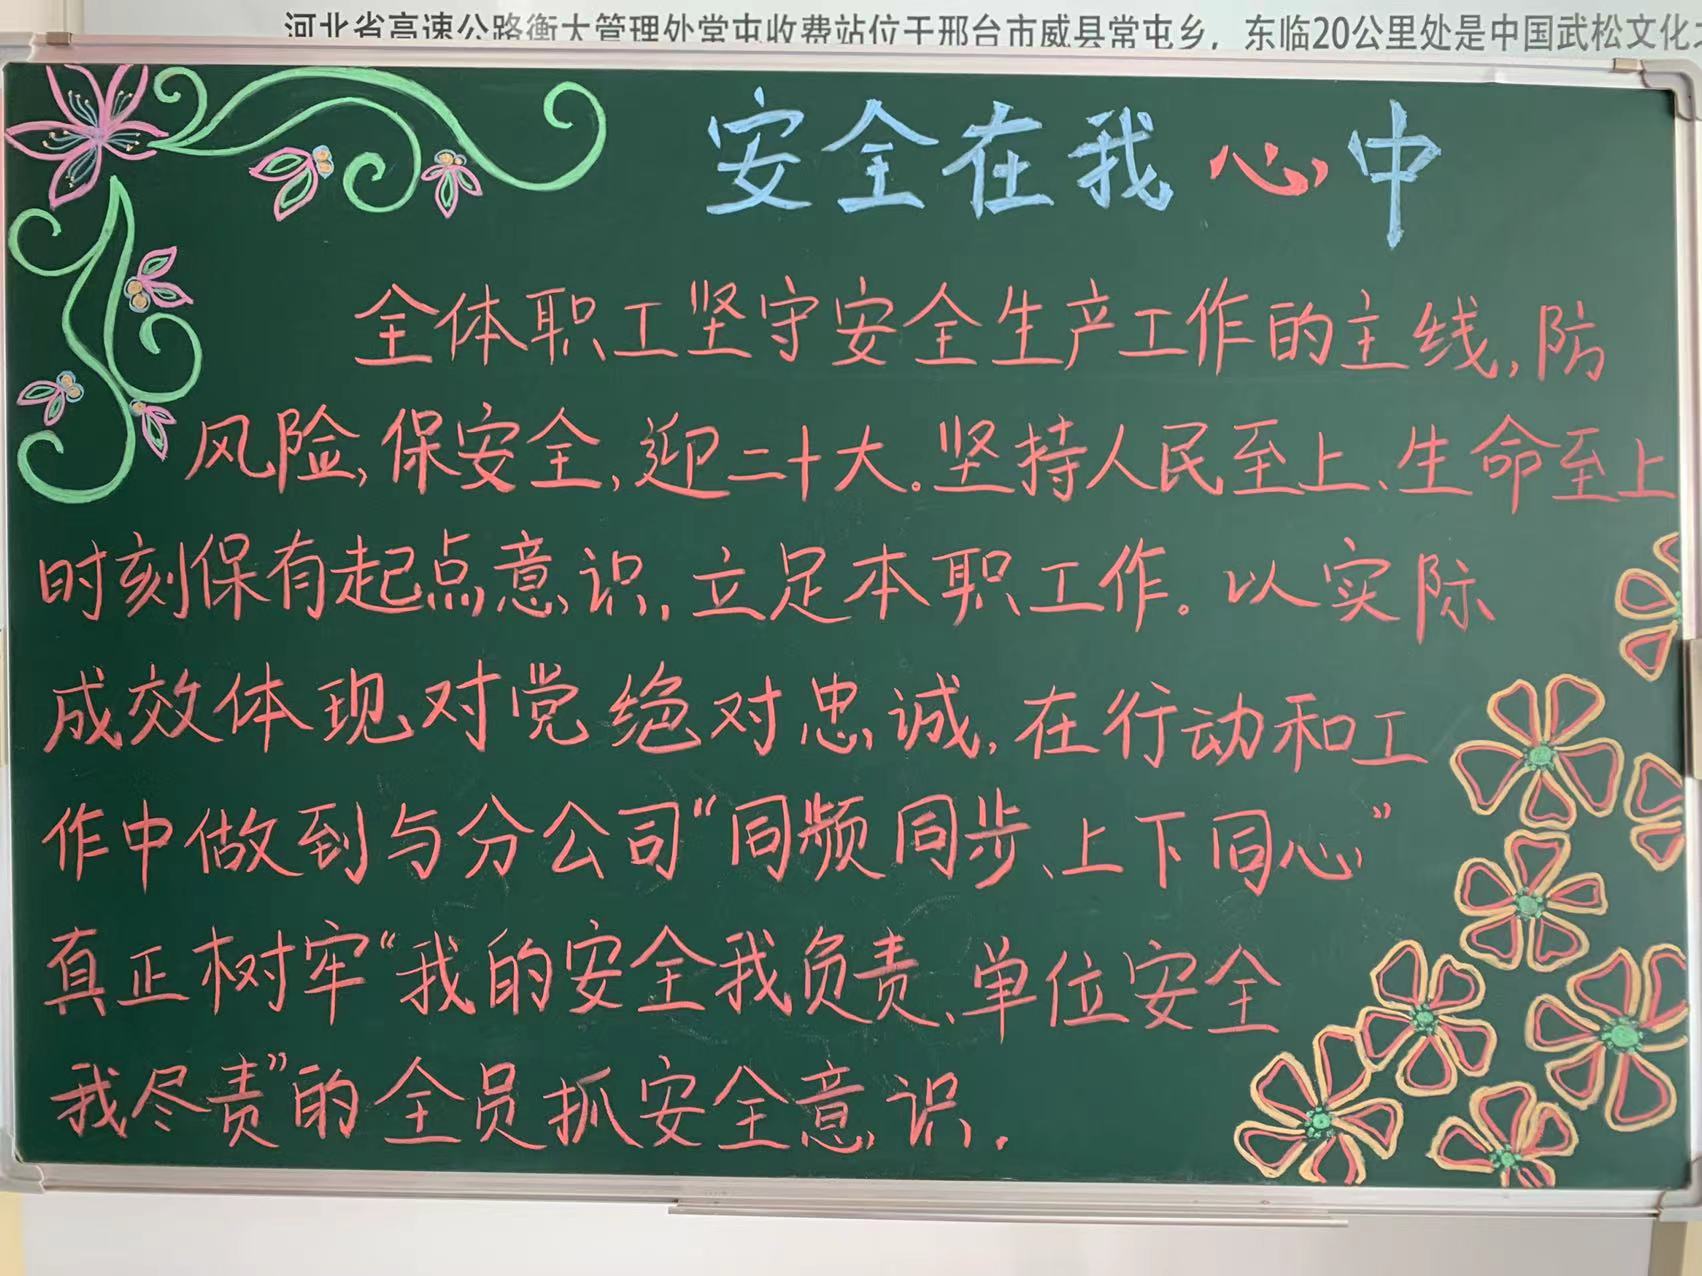 河北省高速公路衡大管理处常屯收费站位于邢台市威县常屯乡，东临20公里处是中国武松文化之
安全在我心中
全体职工坚守安全生产工作的主线，防
风险，保安全，迎二十大。坚持人民至上、生命至上
时刻保有起点意识，立足本职工作。以实际
成效体现对党绝对忠诚，在行动和工
作中做到与分公司“同频同步、上下同心”
真正树牢“我的安全我负责、单位安全
我尽责”的全员抓安全意识．